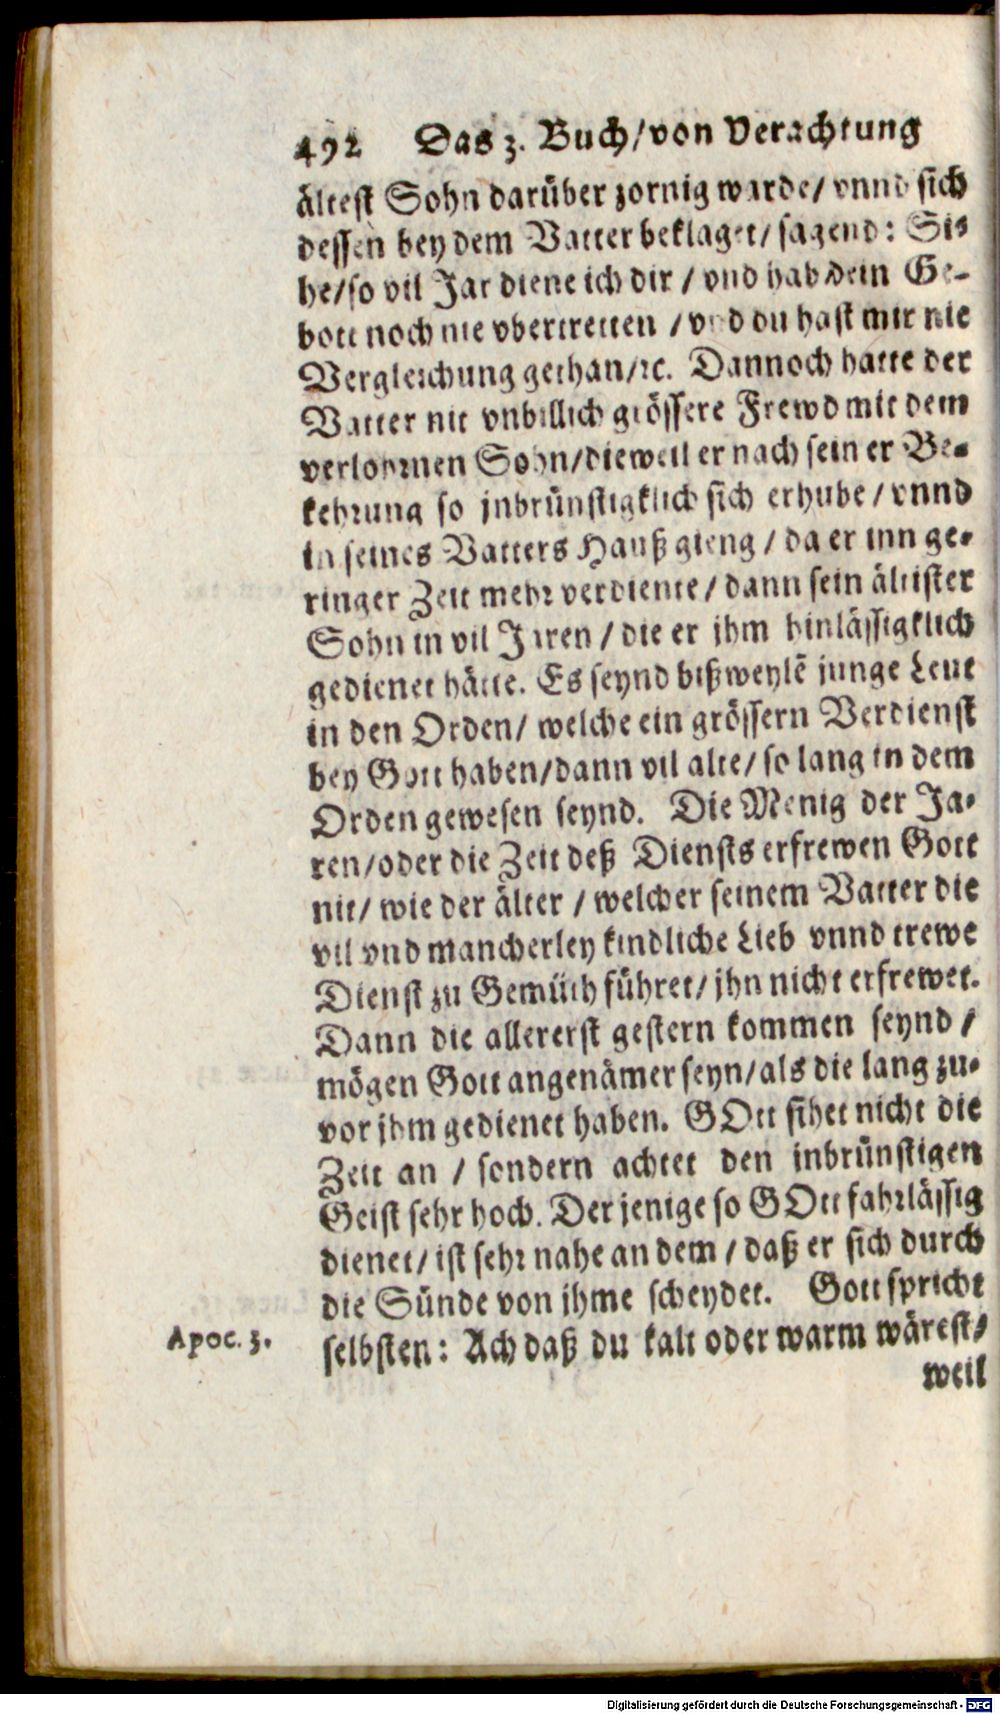 492 Das 3. Buch/von Verachtung
ältest Sohn darüber zornig warde/ vnnd sich
dessen bey dem Vatter beklaget/ sagend: Sis
he/so vil Jar diene ich dir / vnd hab dein Ge-
bott noch nie vbertretten / vnd du hast mir nie
Vergleichung gethan/ꝛc. Dannoch hatte der
Vatter nit vnbillich grössere Frewd mit dem
verlohrnen Sohn/dieweil er nach sein er Be-
kehrung so jnbrünstigklich sich erhube / vnnd
in seines Vatters Hauß gieng / da er inn ge-
ringer Zeit mehr verdiente/ dann sein ältister
Sohn in vil Jaren / die er jhm hinlässigklich
gedienet hätte. Es seynd bißweylē junge Leut
in den Orden/ welche ein grössern Verdienst
bey Gott haben/dann vil alte/ so lang in dem
Orden gewesen seynd. Die Menig der Ja-
ren/oder die Zeit deß Diensts erfrewen Gott
nit/ wie der älter / welcher seinem Vatter die
vil vnd mancherley kindliche Lieb vnnd trewe
Dienst zu Gemüth führet/ jhn nicht erfrewet.
Dann die allererst gestern kommen seynd /
mögen Gott angenämer seyn/als die lang zu-
vor jhm gedienet haben. GOtt sihet nicht die
Zeit an / sondern achtet den jnbrünstigen
Geist sehr hoch. Der jenige so GOtt fahrlässig
dienet/ ist sehr nahe an dem / daß er sich durch
die Sünde von jhme scheydet. Gott spricht
Apoc. 3. selbsten: Ach daß du kalt oder warm wärest/
weil
Digitalisierung gefördert durch die Deutsche Forschungsgemeinschaft - DFG